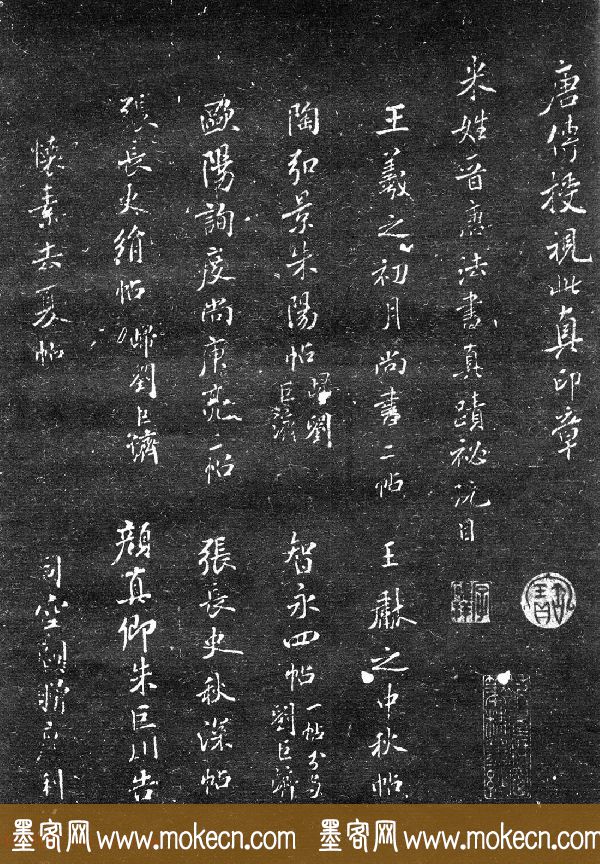 唐傳授視此真印章
米姓晉唐法書真蹟祕玩目
王羲之初月尚書二帖 王獻之中秋帖
陶弘景朱陽帖 歸劉巨濟 智永四帖 一帖分与劉巨濟
歐陽詢度尚庾亮二帖 張長史秋深帖
張長史絹帖 歸劉巨濟 顏真卿朱巨川告
懷素去夏帖 司空圖 利
墨客网 www.mokecn.com 墨客网 www.mokecn.com